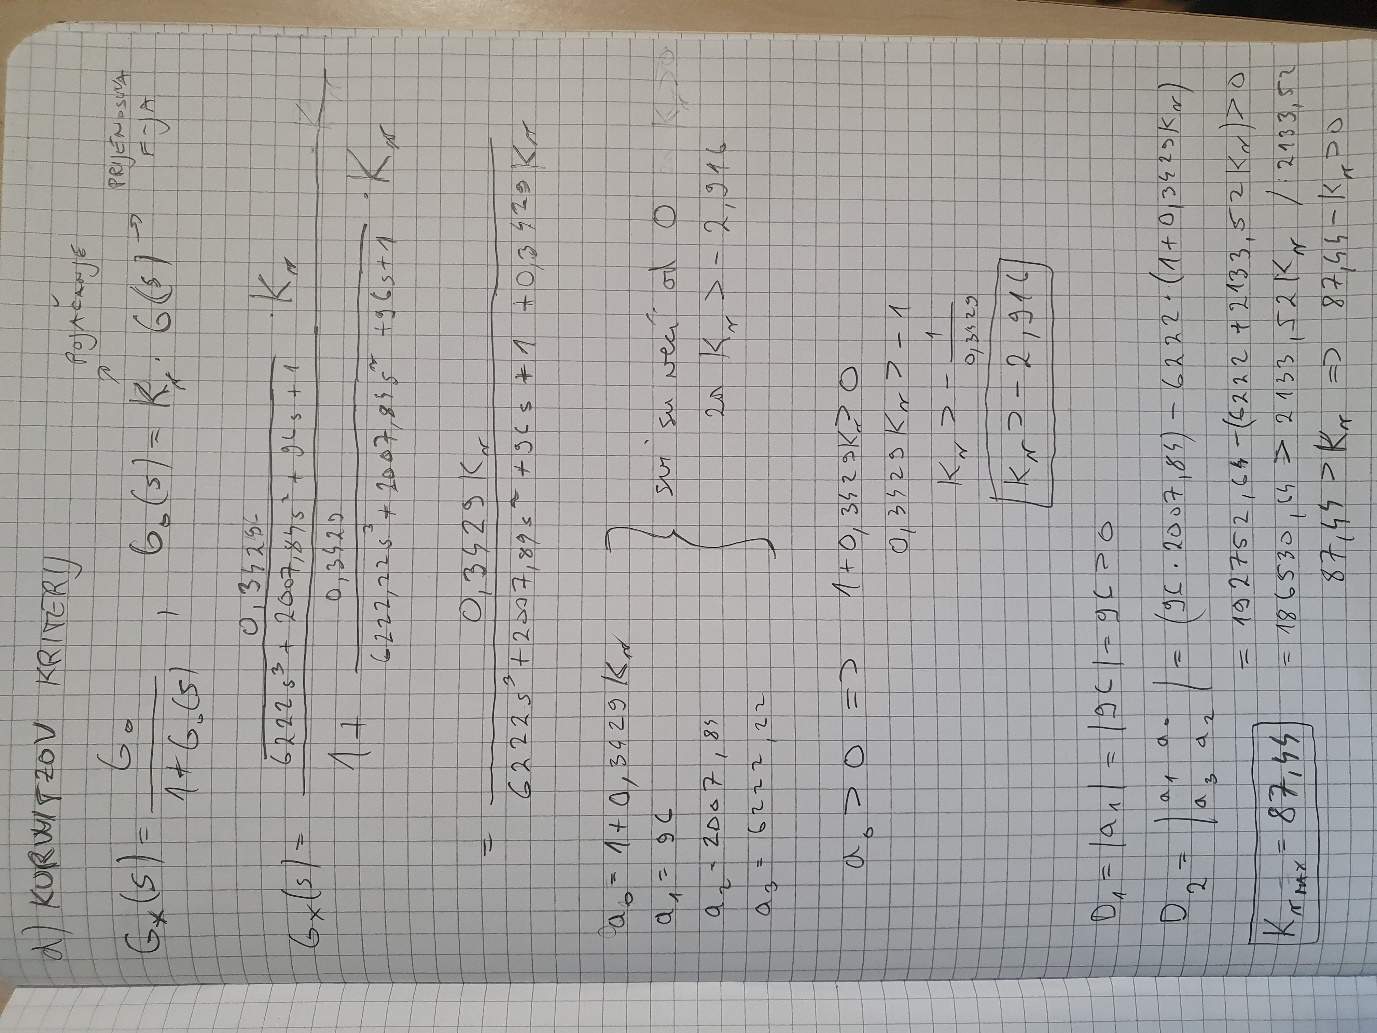 d) KURWITZOV KRITERIJ
POJAČANJE
PRIJENOSNA
F-JA
Gx(s) = G₀ / 1+G₀(s) , G₀(s) = Kr · G(s) →
Gx(s) = 0,3429 / 6222s³ + 2007,84s² + 96s + 1 · Kr
1 + 0,3429 / 6222,22s³ + 2007,84s² + 96s + 1 · Kr
= 0,3429Kr / 6222s³ + 2007,89s² + 96s + 1 + 0,3429Kr
a₀ = 1+0,3429Kr
a₁ = 96
a₂ = 2007,84
a₃ = 6222,22
svi su veći od 0
za Kr > -2,916
Kr>0
a₀ > 0 => 1+0,3429Kr > 0
0,3429Kr > -1
Kr > - 1 / 0,3429
Kr > -2,916
D₁ = |a₁| = |96| = 96 > 0
D₂ = |a₁ a₀| = (96 · 2007,84) - 6222 · (1+0,3429Kr)
|a₃ a₂|
= 192752,64 - (6222 + 2133,52Kr) > 0
= 186530,64 > 2133,52Kr / :2133,52
87,44 > Kr => 87,44 - Kr > 0
Kr MAX = 87,44